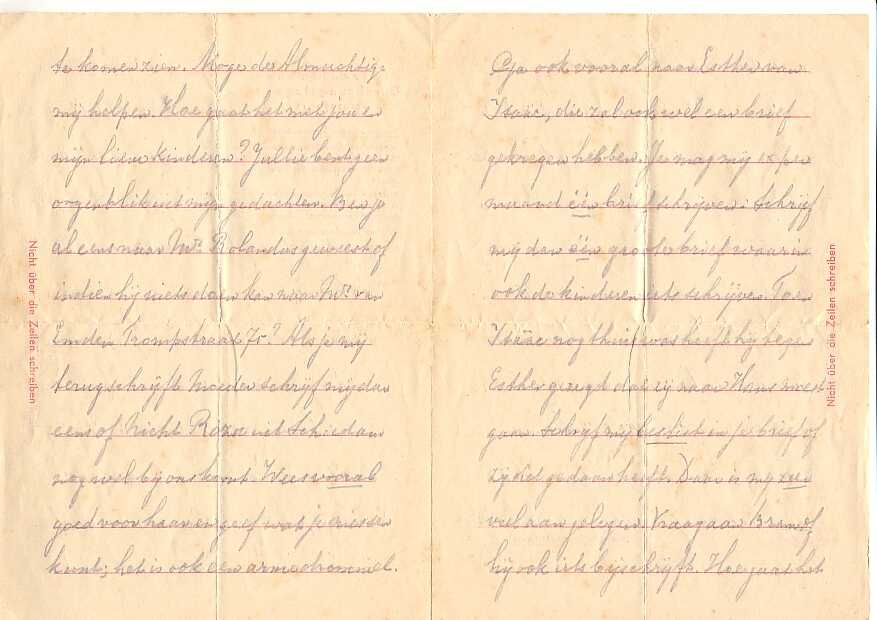 te komen zien. Moge de Almachtige
mij helpen. Hoe gaat het met jou en
mijn lieve kinderen? Jullie bent geen
oogenblik uit mijn gedachten. Ben je
al eens naar Mr. Rolandus geweest of
indien hij niets doen kan naar Mr. van
Emden Trompstraat 75? Als je mij
terugschrijft Moeder schrijf mij dan
eens of Nicht Roza uit Schiedam
nog wel bij ons komt. Wees vooral
goed voor haar en geef wat je missen
kunt; het is ook een arme drommel.
Ga ook vooral naar Esther van
Isaäc, die zal ook wel een brief
gekregen hebben. Je mag mij ex per
maand één brief schrijven. Schrijf
mij dan één groote brief waarin
ook de kinderen iets schrijven. Toen
Isäac nog thuis was heeft hij tegen
Esther gezegd dat zij naar Hans moest
gaan. Schrijf mij beslist in je brief of
zij dat gedaan heeft. Daar is mij zeer
veel aan gelegen. Vraag aan Bram of
hij ook iets bijschrijft. Hoe gaat het
Nicht über die Zeilen schreiben
Nicht über die Zeilen schreiben